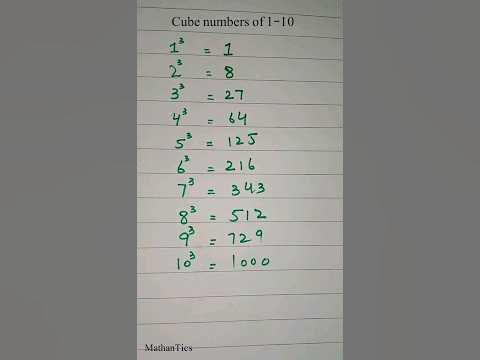 Cube numbers of 1-10
1³ = 1
2³ = 8
3³ = 27
4³ = 64
5³ = 125
6³ = 216
7³ = 343
8³ = 512
9³ = 729
10³ = 1000
MathanTics